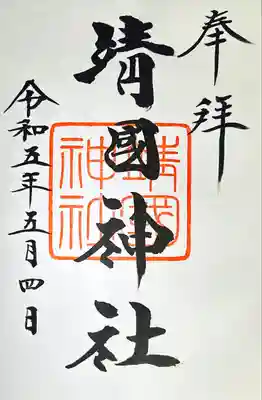 奉拝
靖國神社
靖國神社
令和五年五月四日